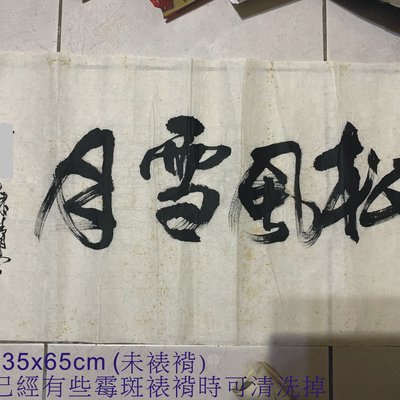 松風雪月
35x65cm (未裱褙)
已經有些霉斑裱褙時可清洗掉